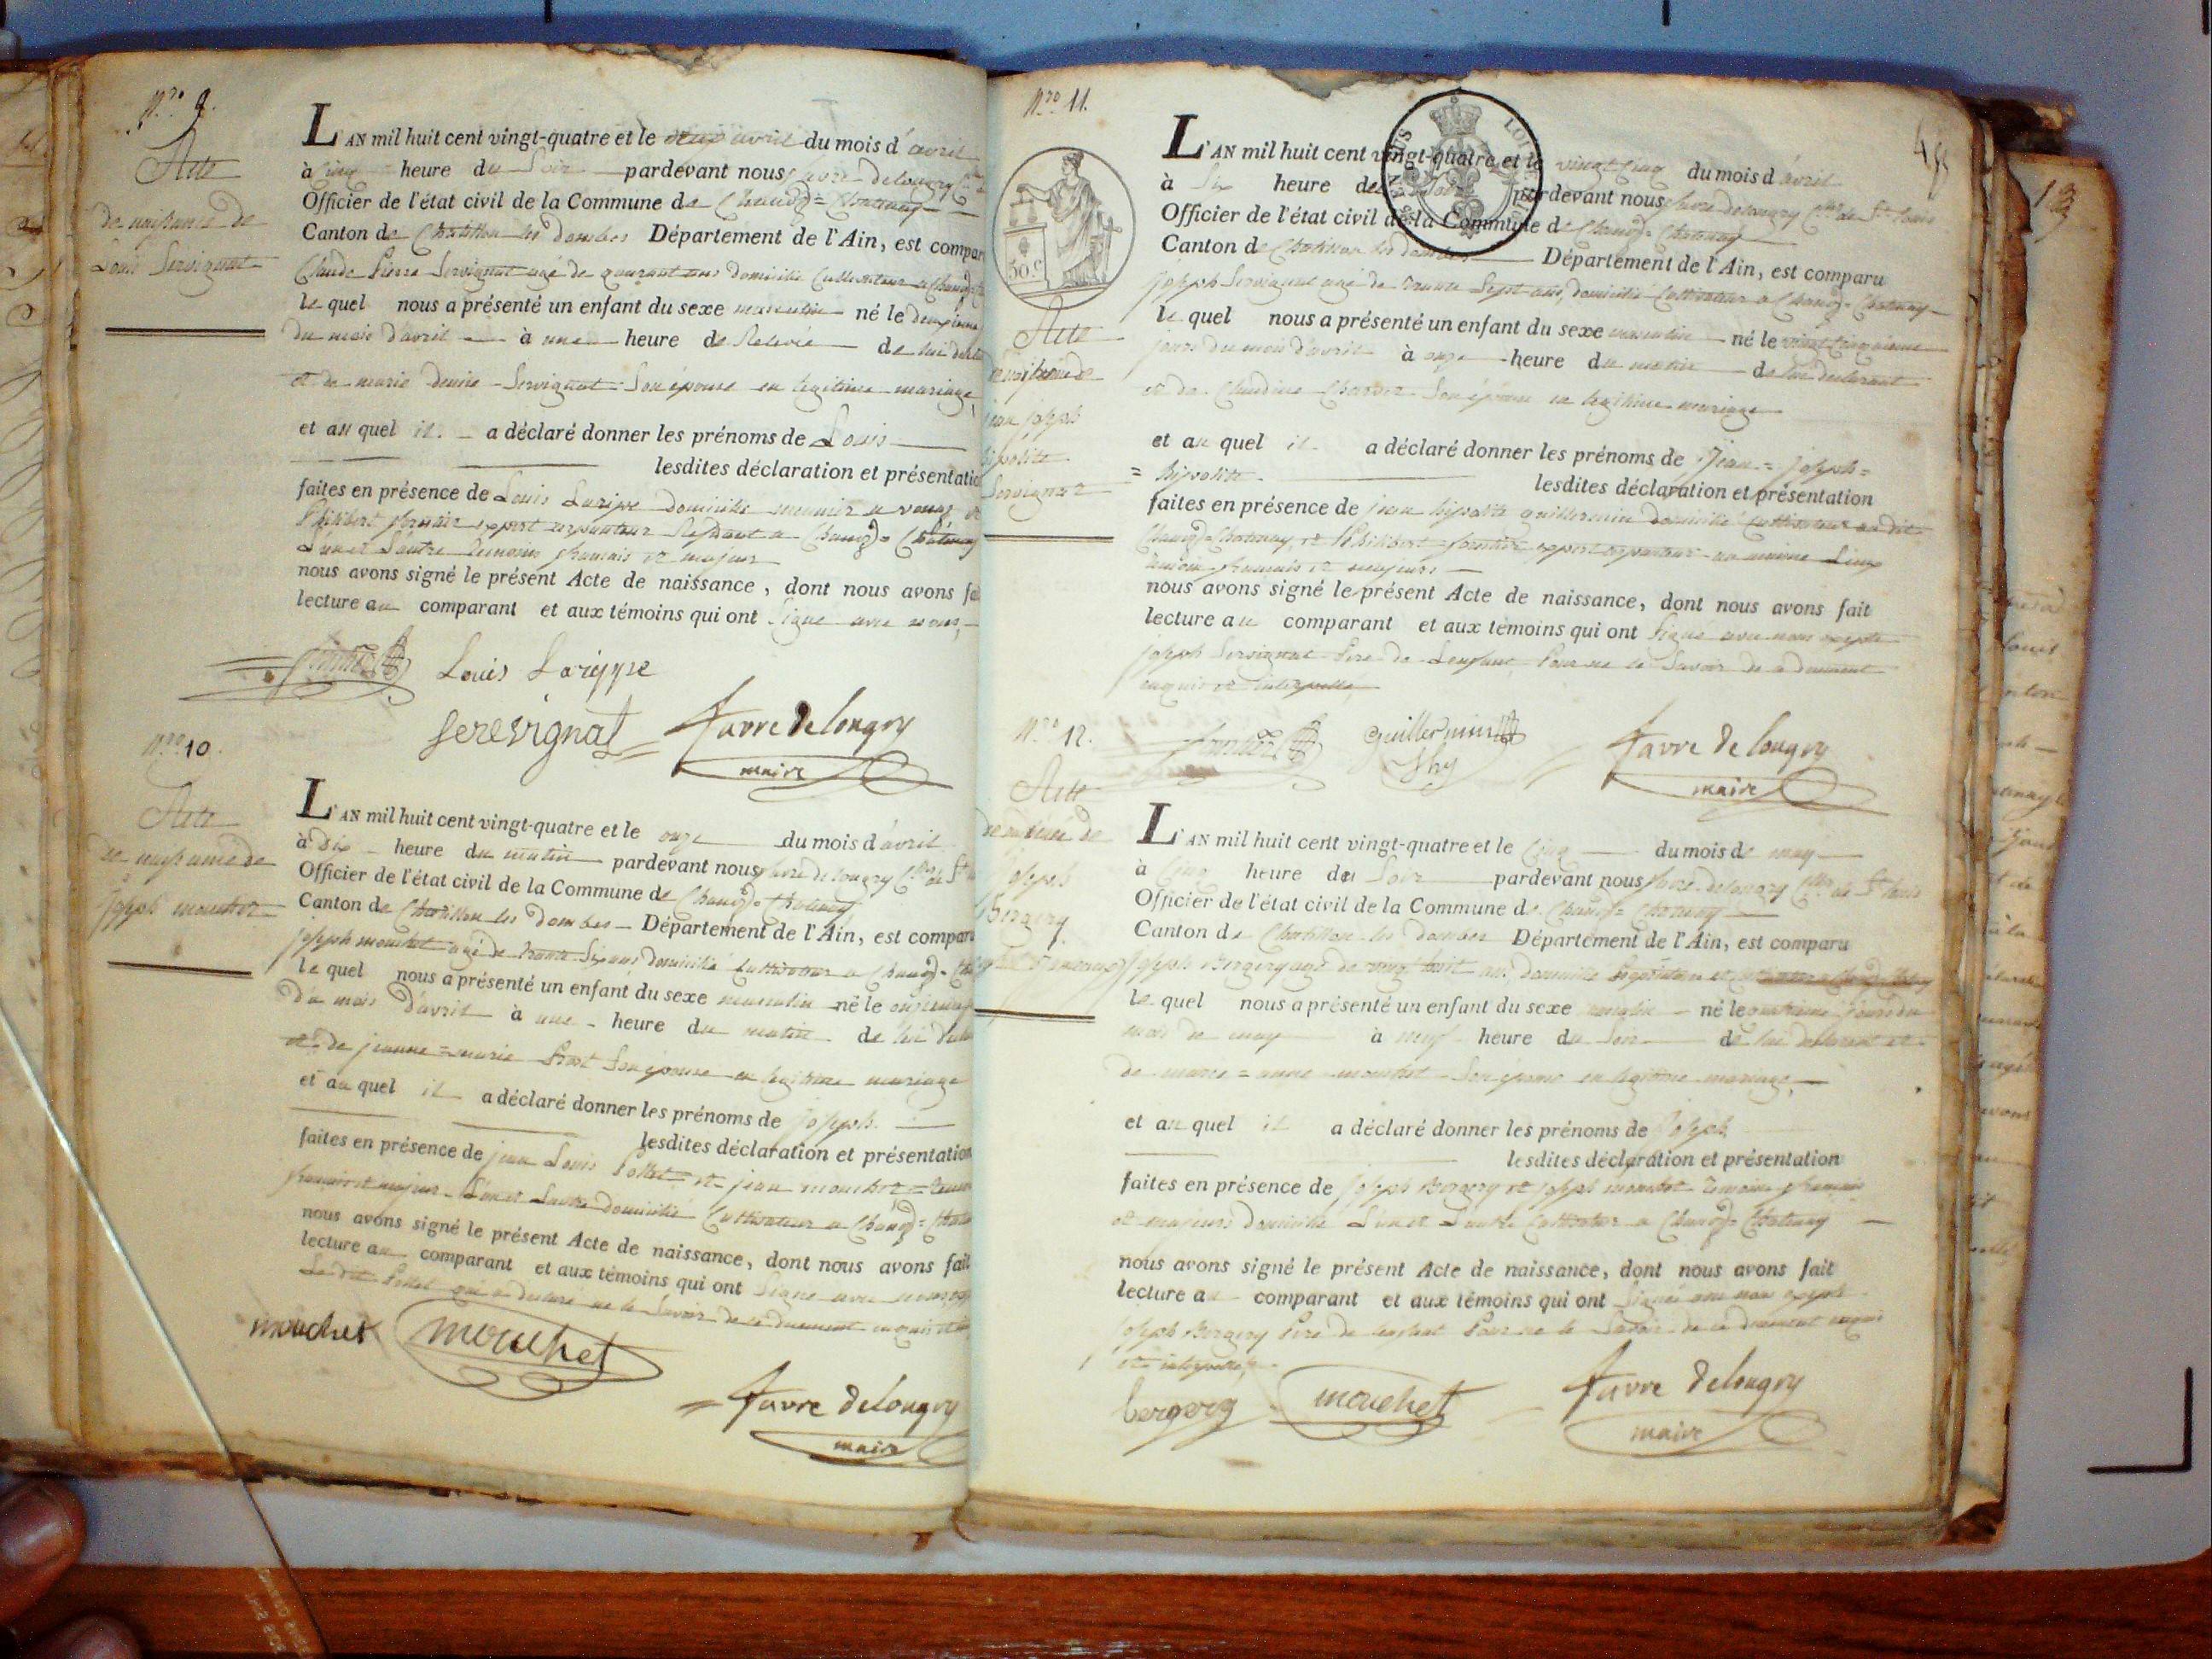 Nro 9.
Acte
de naissance de
Louis Servignat
L'AN mil huit cent vingt-quatre et le deux avril du mois d'avril
à cinq heure du Soir pardevant nous favre delongry
Officier de l'état civil de la Commune de Chanoz=Chatenay
Canton de Chatillon les dombes Département de l'Ain, est compar
Claude Pierre Servignat agé de quarant ans domicilié Cultivateur a Chanoz
le quel nous a présenté un enfant du sexe masculin né le deuxième
du mois d'avril à une heure de Relevée de lui
et de marie denise Servignat Son épouse en legitime mariage
et au quel il a déclaré donner les prénoms de Louis
lesdites déclaration et présentatio
faites en présence de Louis Larippe domicilié meunier a et
Philibert expert arpenteur a Chanoz=Chatenay
L'un et L'autre temoins français et majeur
nous avons signé le présent Acte de naissance, dont nous avons fai
lecture au comparant et aux témoins qui ont Signé avec nous
Louis Larippe
Serevignat Favre delongry
maire
Nro 10.
Acte
de naissance de
joseph mouchet
L'AN mil huit cent vingt-quatre et le onze du mois d'avril
à dix heure du matin pardevant nous favre delongry Cher de St
Officier de l'état civil de la Commune de Chanoz=Chatenay
Canton de Chatillon les dombes Département de l'Ain, est compar
joseph mouchet agé de trante Six ans domicilié Cultivateur a Chanoz=
le quel nous a présenté un enfant du sexe masculin né le onzieme
du mois d'avril à une heure du matin de lui
et de jeanne=marie Prost Son épouse en legitime mariage
et au quel il a déclaré donner les prénoms de joseph
lesdites déclaration et présentation
faites en présence de jean Louis Pollet et jean mouchet
français et majeur L'un et L'autre domicilié Cultivateur a Chanoz=
nous avons signé le présent Acte de naissance, dont nous avons fait
lecture au comparant et aux témoins qui ont Signé avec nous
Le dit Pollet qui a declaré ne le Savoir de ce duement enquis et
mouchet mouchet
Favre delongry
maire
Nro 11.
30.c
Acte
de naissance de
jean joseph
hipolite
Servignat
L'AN mil huit cent vingt-quatre et le vingt cinq du mois d'avril
à Six heure du Soir pardevant nous favre delongry Cher de St Louis
Officier de l'état civil de la Commune de Chanoz=Chatenay
Canton de Chatillon les dombes Département de l'Ain, est comparu
joseph Servignat agé de trante Sept ans, domicilié Cultivateur a Chanoz=Chatenay
le quel nous a présenté un enfant du sexe masculin né le vingt cinquieme
jours du mois d'avril à onze heure du matin de lui declarant
et de Claudine Son épouse en legitime mariage
et au quel il a déclaré donner les prénoms de Jean=joseph=
=hipolite lesdites déclaration et présentation
faites en présence de jean hipolite guillermin domicilié Cultivateur au dit
Chanoz=Chatenay, et Philibert expert arpenteur au meme Lieux
temoin français et majeurs
nous avons signé le présent Acte de naissance, dont nous avons fait
lecture au comparant et aux témoins qui ont Signé avec nous excepté
joseph Servignat Pere de L'enfant Pour ne le Savoir de ce duement
enquis et interpellé
guillermin Favre de longry
maire
Nro 12.
Acte
de naissance de
joseph
Bergery
L'AN mil huit cent vingt-quatre et le Cinq du mois de may
à Cinq heure du Soir pardevant nous favre delongry Cher de St Louis
Officier de l'état civil de la Commune de Chanoz=Chatenay
Canton de Chatillon les dombes Département de l'Ain, est comparu
joseph Bergery agé de vingt huit ans, domicilié
le quel nous a présenté un enfant du sexe masculin né le quatrieme jours du
mois de may à neuf heure du Soir de lui declarant et
de marie=anne mouchet Son épouse en legitime mariage
et au quel il a déclaré donner les prénoms de joseph
lesdites déclaration et présentation
faites en présence de joseph Bergery et joseph mouchet temoins français
et majeurs domicilié L'un et L'autre Cultivateur a Chanoz=Chatenay
nous avons signé le présent Acte de naissance, dont nous avons fait
lecture au comparant et aux témoins qui ont Signés avec nous excepté
joseph Bergery Pere de lenfant Pour ne le Savoir de ce duement enquis
et interpellé
bergery mouchet Favre delongry
maire